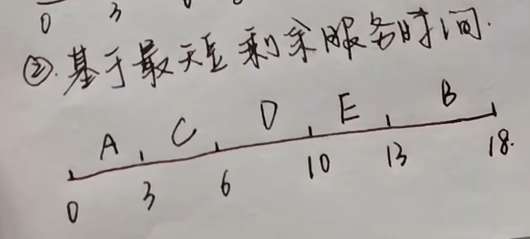 0 3
②.基于最短剩余服务时间.
A C D E B
0 3 6 10 13 18.